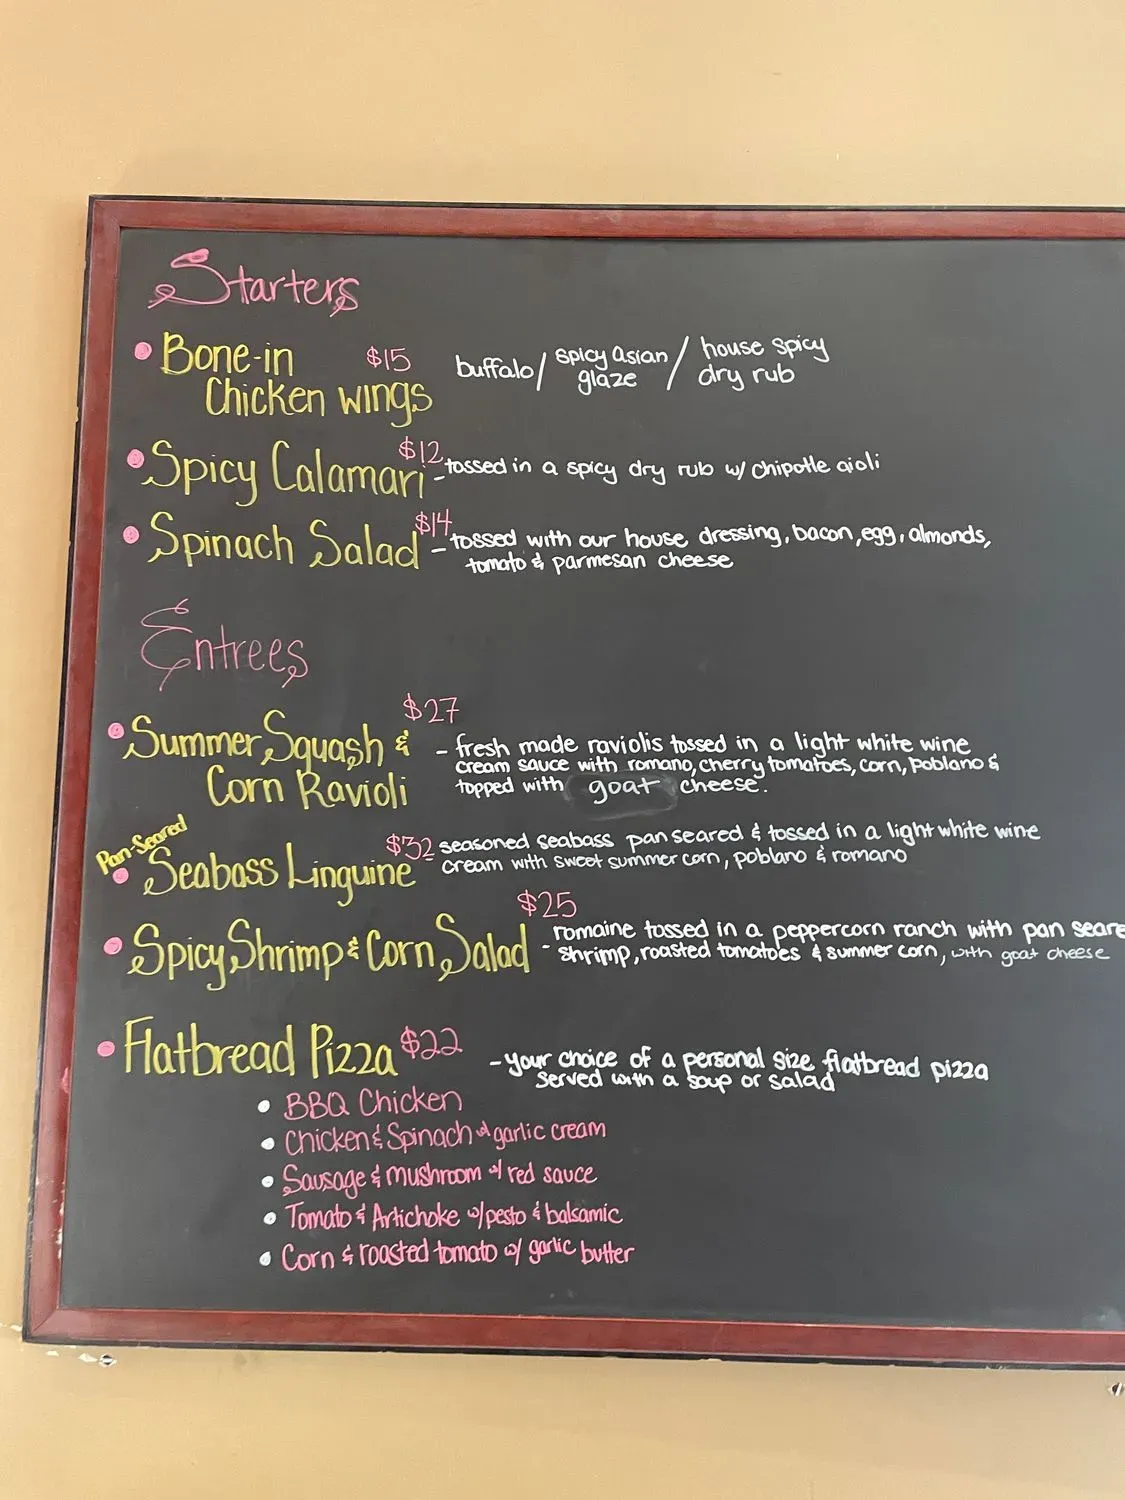 Starters
Bone-in $15 buffalo / spicy asian glaze / house spicy dry rub
Chicken wings
Spicy Calamari $12 - tossed in a spicy dry rub w/ chipotle aioli
Spinach Salad $14 - tossed with our house dressing, bacon, egg, almonds,
tomato & parmesan cheese
Entrees
Summer Squash & $27 - fresh made raviolis tossed in a light white wine
Corn Ravioli cream sauce with romano, cherry tomatoes, corn, poblano &
topped with goat cheese.
Pan-Seared
Seabass Linguine $32 seasoned seabass pan seared & tossed in a light white wine
cream with sweet summer corn, poblano & romano
$25
Spicy Shrimp & Corn Salad - romaine tossed in a peppercorn ranch with pan seare
shrimp, roasted tomatoes & summer corn, with goat cheese
Flatbread Pizza $22 - your choice of a personal size flatbread pizza
served with a soup or salad
BBQ Chicken
Chicken & Spinach w/ garlic cream
Sausage & mushroom w/ red sauce
Tomato & Artichoke w/ pesto & balsamic
Corn & roasted tomato w/ garlic butter